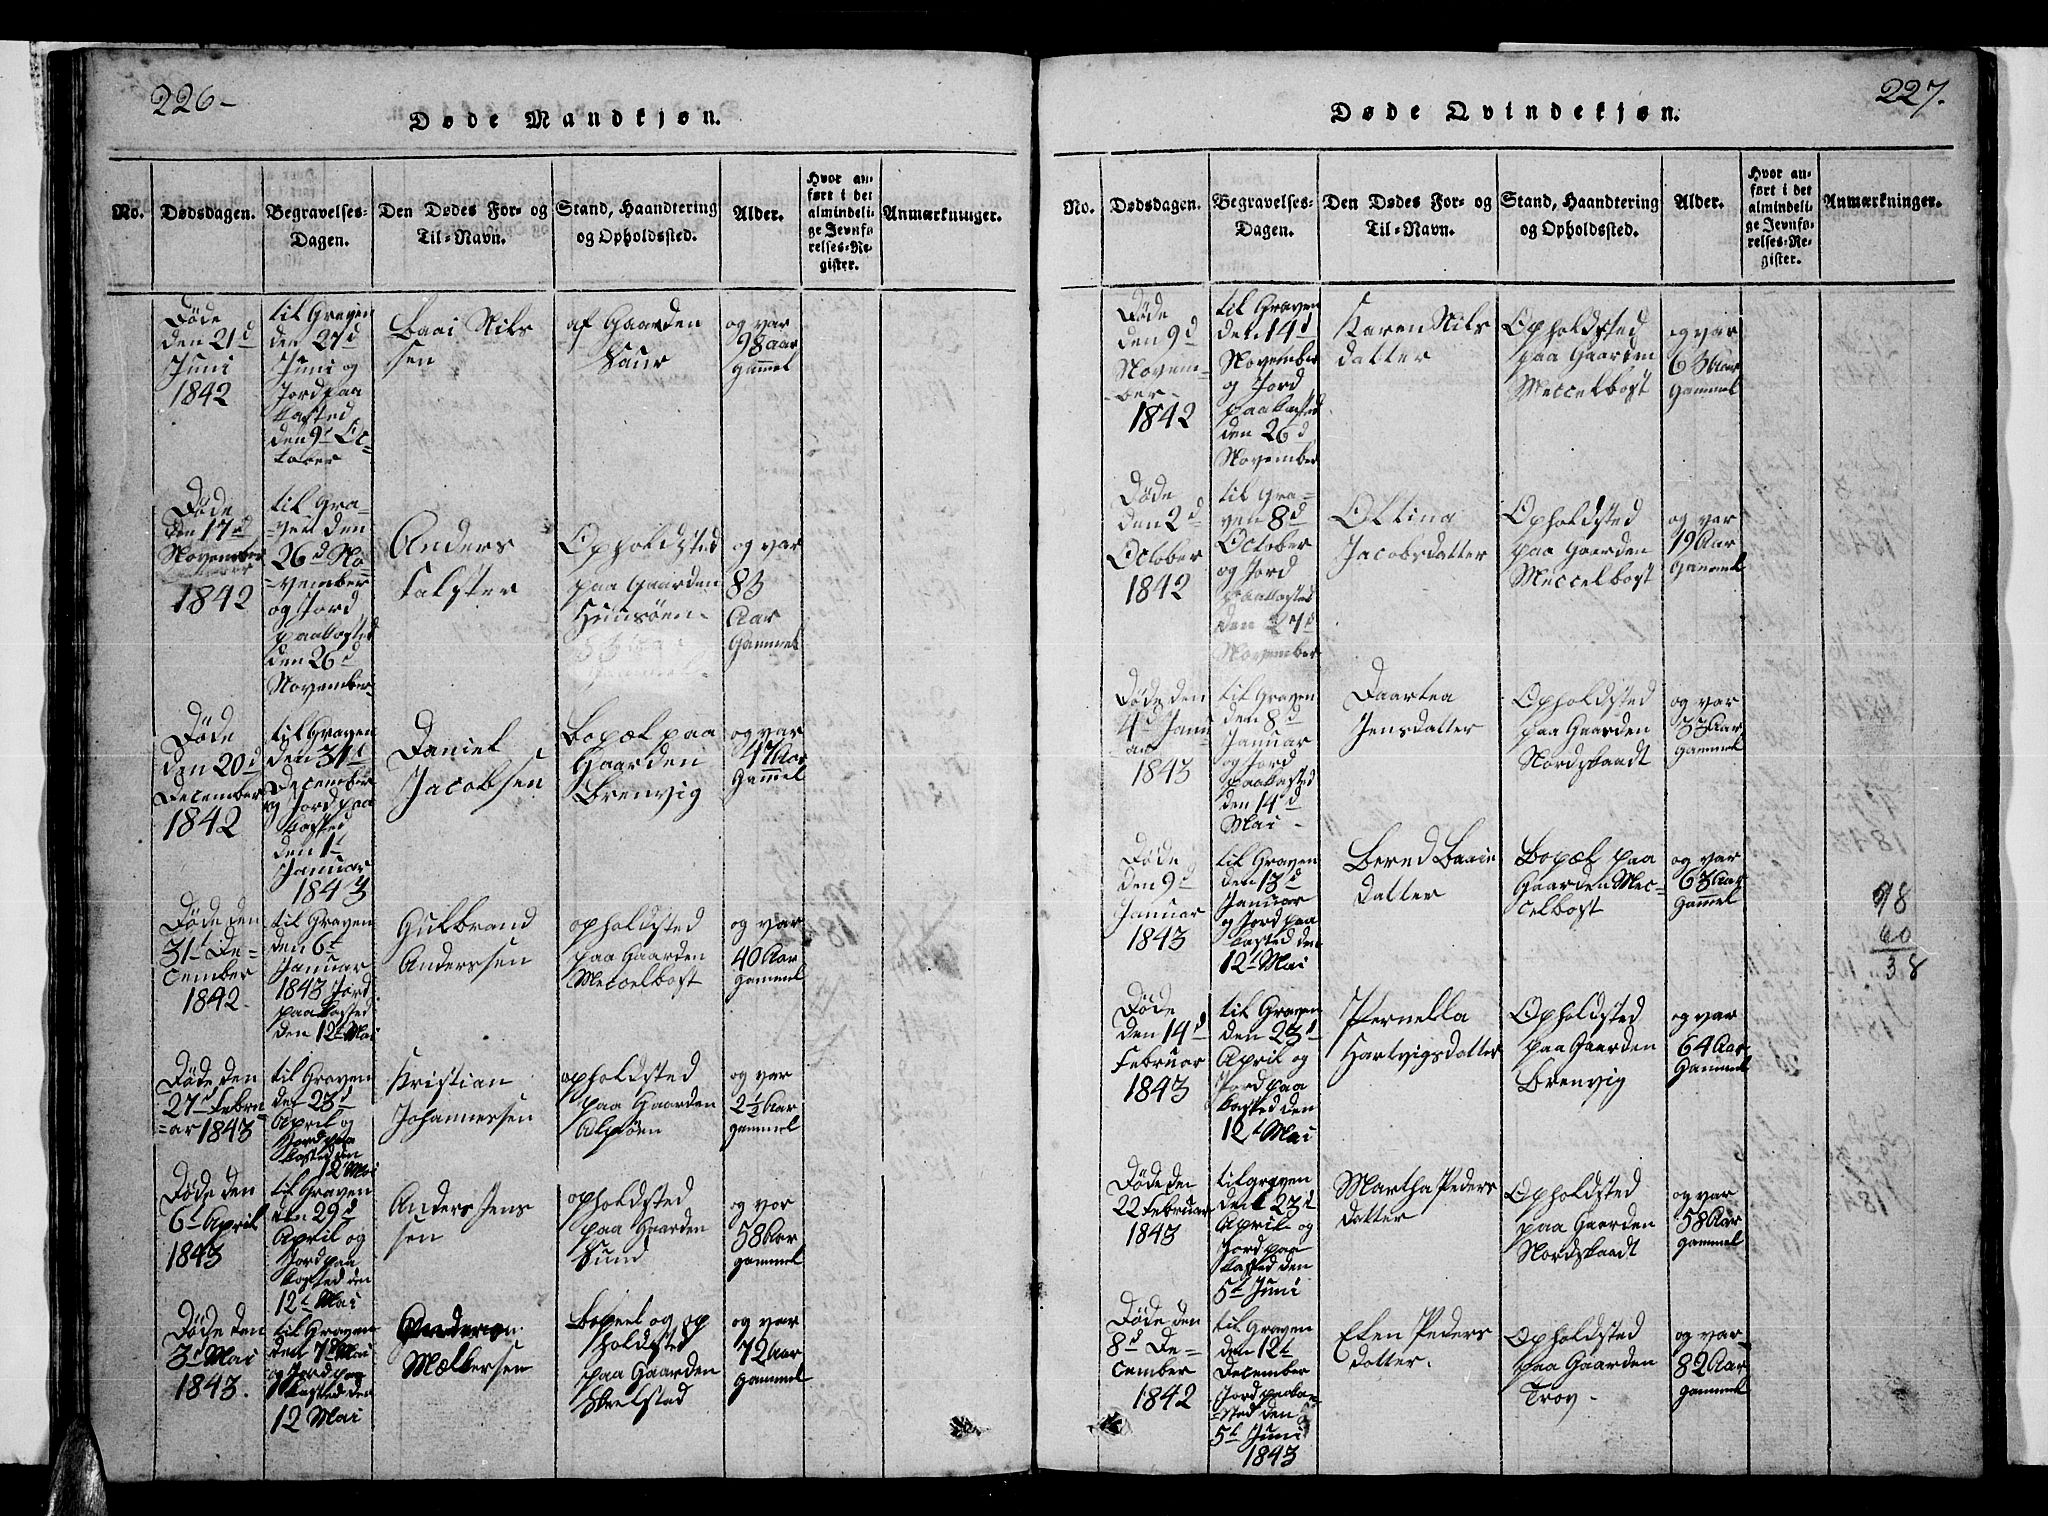 226-
Døde Mandkjøn.
No.
Dødsdagen.
Begravelses-
Dagen.
Den Dødes For- og
Til-Navn.
Stand, Haandtering
og Opholdssted.
Alder.
Hvor an-
ført i det
almindeli-
ge Jevnfø-
relses-Re-
gister.
Anmærkninger.
Døde
den 21d
Juni
1842
til Graven
den 27d
Juni og
Jord paa
kasted
den 9d Oc-
tober
Baai Nils
sen
af Gaarden
og var
98 aar
Gammel
Døde
den 17d
November
1842
til Gra-
ven den
26d No
-vember
og Jord
paakasted
den 26d
November
Anders
Falster
Opholdsted
paa Gaarden
og var
83
Aar
Gammel
Døde
den 20d
December
1842
til Graven
den 31d
December
og Jord paa
kasted
den 1t
Januar
1843
Daniel
Jacobsen
Bopæl paa
Gaarden
Brenvig
og var
47 Aar
Gammel
Døde den
31t De-
cember
1842
til Graven
den 6t
Januar
1843 Jord
paakasted
den 12t Mai
Gulbrand
Anderssen
opholdsted
paa Gaarden
Meccelbost
og var
40 Aar
gammel
Døde den
27d Febru
-ar 1843
til Graven
den 23d
April og
Jord paa
kasted den
12 Mai
Kristian
Johannessen
opholdsted
paa Gaarden
Alsøen
og var
2½ Aar
gammel
Døde den
6t April
1843
til Graven
den 29d
April og
Jord paa
kasted den
12t Mai
Anders Jens
sen
opholdsted
paa Gaarden
Sund
og var
58 Aar
gammel
Døde den
3d Mai
1843.
til Graven
den 7d Mai
og Jord paa
kasted den
12 Mai
Bopeel og op
holdsted
paa Gaarden
og var
72 Aar
gammel
227.
Døde Qvindekjøn.
No.
Dødsdagen.
Begravelses-
Dagen.
Den Dødes For- og
Til-Navn.
Stand, Haandtering
og Opholdssted.
Alder.
Hvor an-
ført i det
almindeli-
ge Jevnfø-
relses-Re-
gister.
Anmærkninger.
Døde
den 9d
Novem-
ber
1842
til Graven
den 14d
November
og Jord
paakasted
den 26d
November
Karen Nils
datter
Opholdsted
paa Gaarden
Meccelbost
og var
63 Aar
gammel
Døde
den 2d
October
1842
til Gra-
ven 8d
October
og Jord
paakasted
den 27d
November
Olling
Jacobsdatter
Opholdsted
paa Gaarden
Meccelbost
og var
19 Aar
Gammel
Døde den
4d Janu
ar
1843
til Graven
den 8d
Januar
og Jord
paakasted
den 14d
Mai
Daartea
Jensdatter
Opholdsted
paa Gaarden
Nordskaadt
og var
33 Aar
gammel
Døde
den 9d
Januar
1843
til Graven
den 13d
Januar
og Jord paa
kasted den
12t Mai
Bered Baaie
datter
Bopæl paa
Gaarden Mec-
celbost
og var
63 Aar
Gammel
98
60
38
Døde
den 14d
Februar
1843
til Graven
den 23d
April og
Jord paa
kasted den
12t Mai
Pernella
Hartvigsdatter
Opholdsted
paa Gaarden
Brenvig
og var
64 Aar
Gammel
Døde den
22 Februar
1843
til graven
den 23d
April og
Jord paa
kasted den
5t Juni
Martha Peders
datter
Opholdsted
paa Gaarden
Nordskaadt
og var
58 Aar
gammel
Døde den
8d De-
cember
1842
til Graven
den 12t
December
Jord paaka-
sted den
5t Juni
1843
Elen Peders
datter.
Opholdsted
paa Gaarden
Trov
og var
82 Aar
gammel